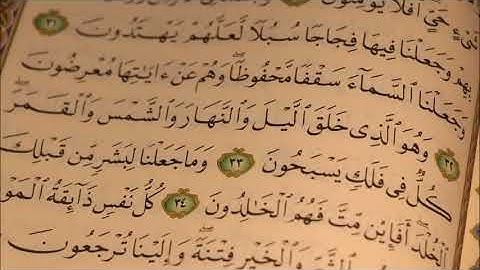 شَىْءٍ حَىٍّ أَفَلَا يُؤْمِنُونَ
بِهِمْ وَجَعَلْنَا فِيهَا فِجَاجًا سُبُلًا لَّعَلَّهُمْ يَهْتَدُونَ ٣١
وَجَعَلْنَا ٱلسَّمَآءَ سَقْفًا مَّحْفُوظًاۖ وَهُمْ عَنْ ءَايَٰتِهَا مُعْرِضُونَ
٣٢ وَهُوَ ٱلَّذِى خَلَقَ ٱلَّيْلَ وَٱلنَّهَارَ وَٱلشَّمْسَ وَٱلْقَمَرَۖ
كُلٌّ فِى فَلَكٍ يَسْبَحُونَ ٣٣ وَمَا جَعَلْنَا لِبَشَرٍ مِّن قَبْلِكَ
ٱلْخُلْدَۖ أَفَإِي۟ن مِّتَّ فَهُمُ ٱلْخَٰلِدُونَ ٣٤ كُلُّ نَفْسٍ ذَآئِقَةُ ٱلْمَوْ
وَٱلْخَيْرِ فِتْنَةًۖ وَإِلَيْنَا تُرْجَعُونَ